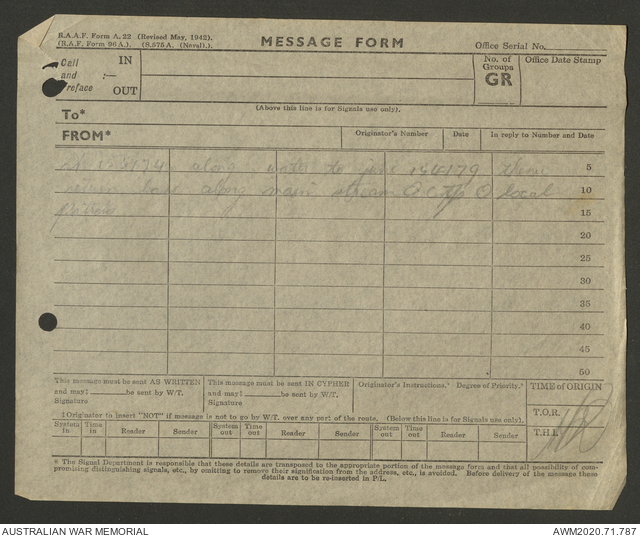 R.A.A.F. Form A.22 (Revised May, 1942).
(R.A.F. Form 96A.) (S.575A. (Naval).).
MESSAGE FORM
Office Serial No.
Call
and :—
Preface
IN
OUT
No. of
Groups
GR
Office Date Stamp
(Above this line is for Signals use only).
To*
FROM*
Originator's Number
Date
In reply to Number and Date
along water to 5
return base along main stream local 10
15
20
25
30
35
40
45
50
This message must be sent AS WRITTEN
and may‡ be sent by W.T.
Signature
This message must be sent IN CYPHER
and may‡ be sent by W.T.
Signature
Originator's Instructions.* Degree of Priority.*
TIME OF ORIGIN
T.O.R.
T.H.I.
‡Originator to insert "NOT" if message is not to go by W.T. over any part of the route. (Below this line is for Signals use only).
System in
Time in
Reader
Sender
System out
Time out
Reader
Sender
System out
Time out
Reader
Sender
* The Signal Department is responsible that these details are transposed to the appropriate portion of the message form and that all possibility of com-
promising distinguishing signals, etc., by omitting to remove their signification from the address, etc., is avoided. Before delivery of the message these
details are to be re-inserted in P/L.
AUSTRALIAN WAR MEMORIAL
AWM2020.71.787